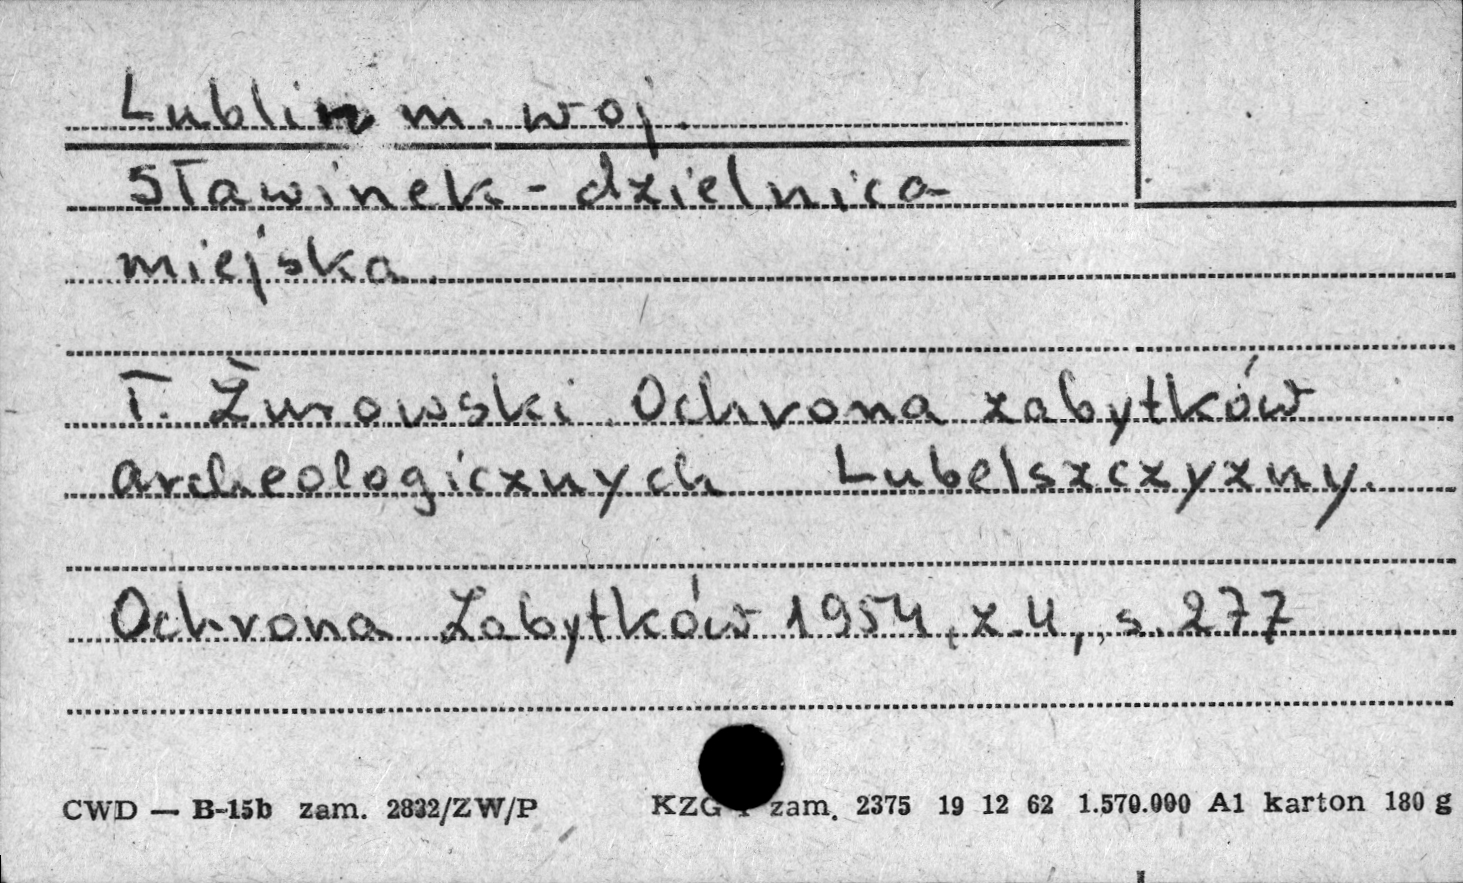 Lublin m. woj.
Sławinek - dzielnica
miejska.
T. Żurowski Ochrona zabytków
archeologicznych Lubelszczyzny.
Ochrona Zabytków 1954, z. 4, s. 277
CWD — B-15b zam. 2832/ZW/P KZG zam. 2375 19 12 62 1.570.000 A1 karton 180 g